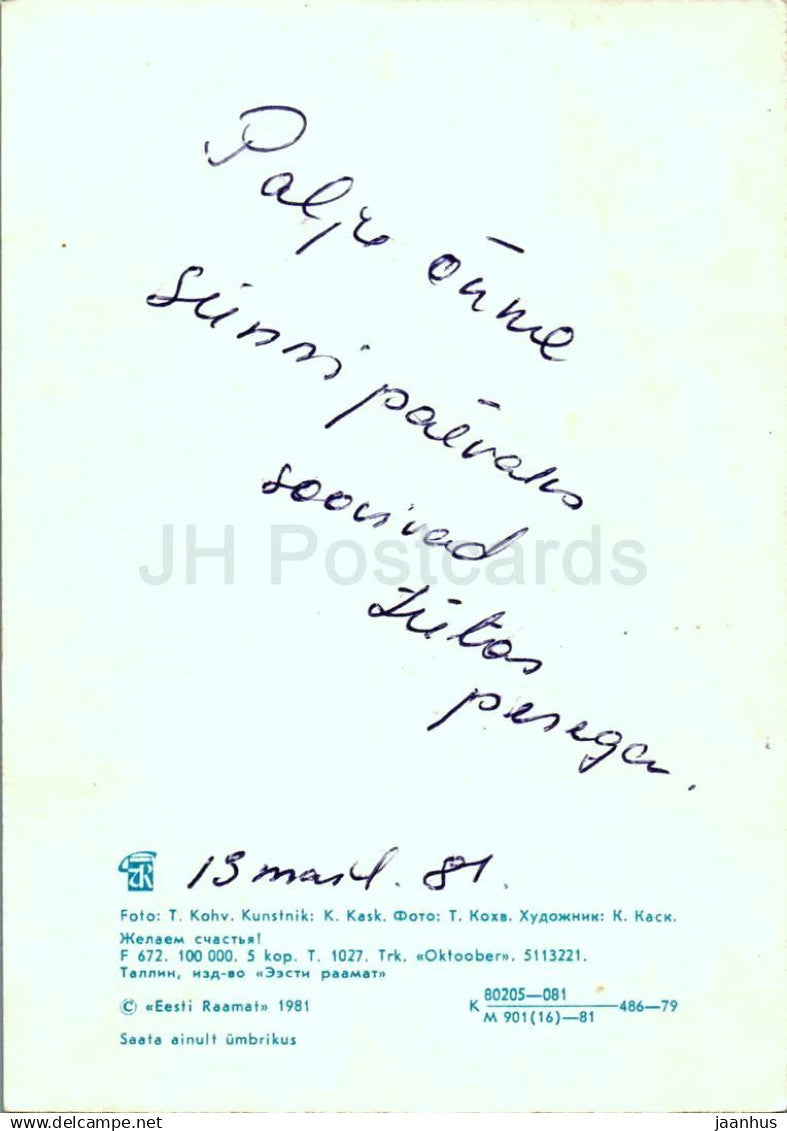 Palju õnne
sünnipäevaks
soovivad
perega.
13 mail. 81.
Foto: T. Kohv. Kunstnik: K. Kask. Фото: Т. Кохв. Художник: К. Каск.
Желаем счастья!
F 672. 100 000. 5 kop. T. 1027. Trk. «Oktoober». 5113221.
Таллин, изд-во «Ээсти раамат»
© «Eesti Raamat» 1981
К 80205—081
М 901(16)—81 —486—79
Saata ainult ümbrikus
JH Postcards
delcampe.net
jaanhus